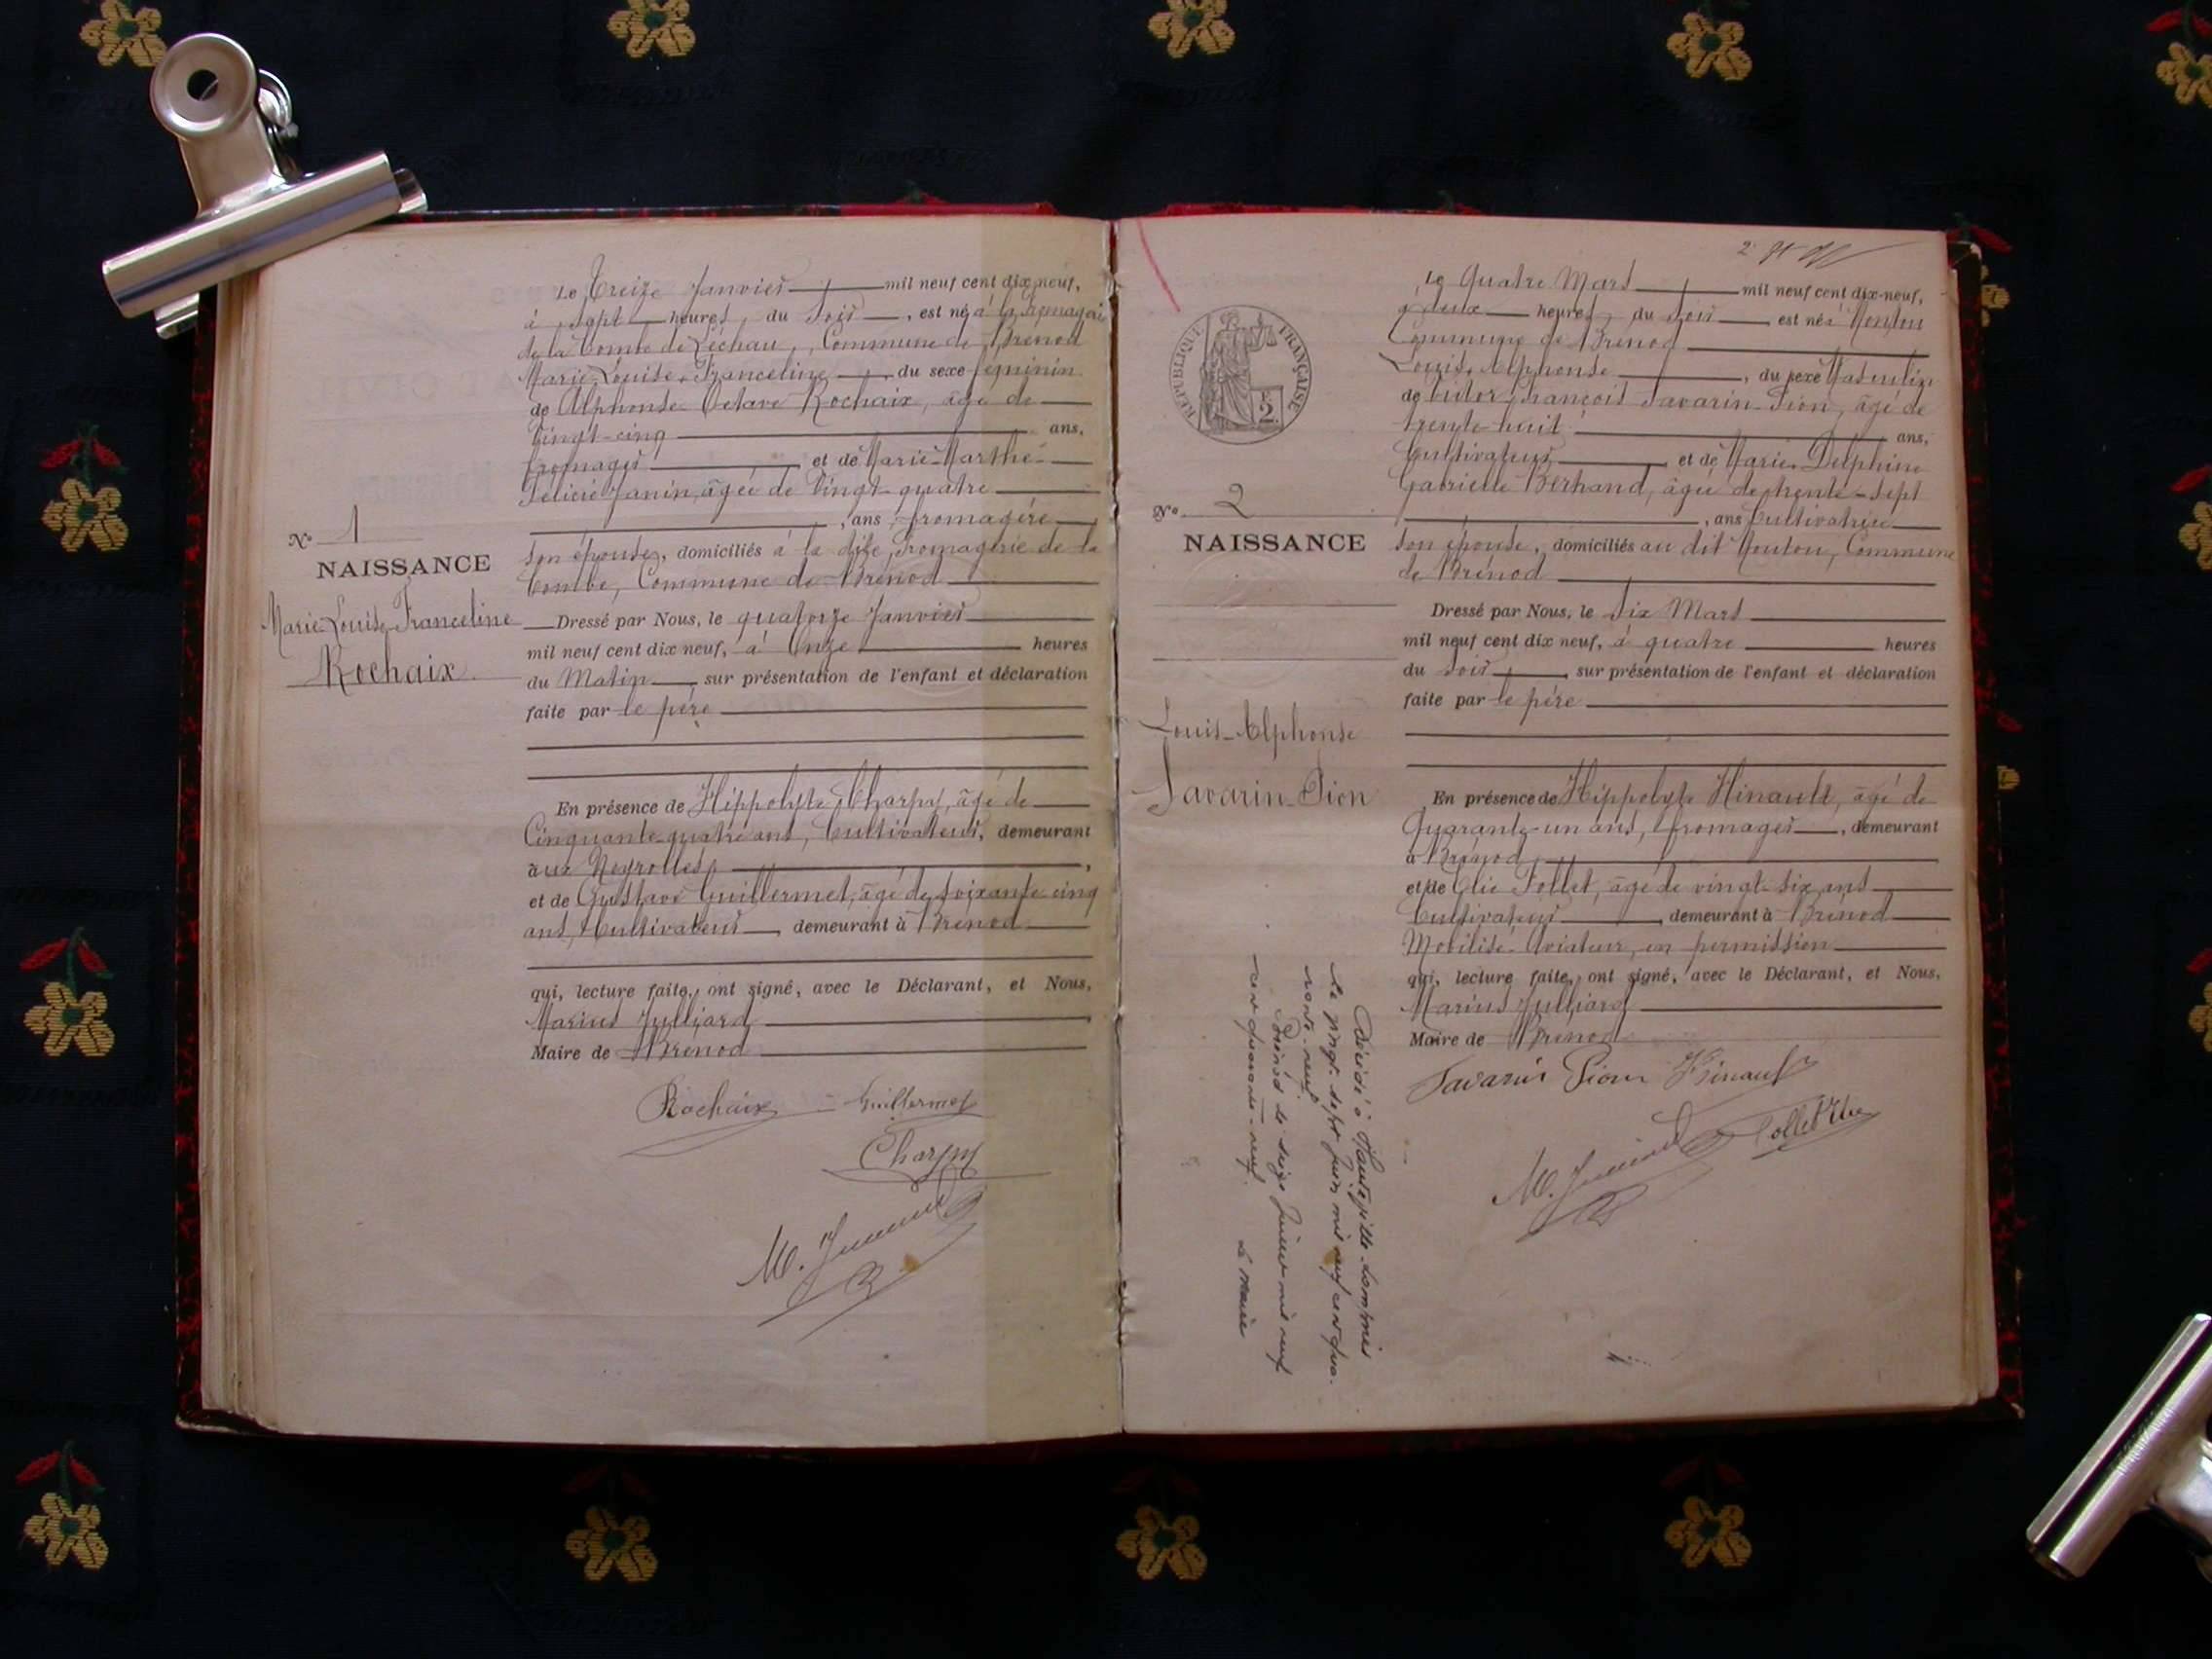 Le Treize Janvier mil neuf cent dix neuf,
à Sept heures, du Soir, est née à la fromagerie
de la Combe de Léchau, Commune de Brénod
Marie-Louise-Franceline du sexe féminin
de Alphonse Octave Rochaix, âgé de
Vingt-cinq ans,
fromager et de Marie-Marthe-
Félicie Janin, âgée de Vingt-quatre
, ans, fromagère
N° 1
NAISSANCE
Marie-Louise-Franceline
Rochaix
son épouse, domiciliés à la dite fromagerie de la
Combe, Commune de Brénod
Dressé par Nous, le quatorze Janvier
mil neuf cent dix neuf, à Onze heures
du Matin, sur présentation de l'enfant et déclaration
faite par le père
En présence de Hippolyte Charpy, âgé de
Cinquante-quatre ans, Cultivateur, demeurant
aux Neyrolles,
et de Gustave Guillermet, âgé de soixante cinq
ans, Cultivateur, demeurant à Brénod
qui, lecture faite, ont signé, avec le Déclarant, et Nous,
Marius Julliard
Maire de Brénod
Rochaix Guillermet
Charpy
M. Julliard
2
Le Quatre Mars mil neuf cent dix-neuf,
à deux heures, du Soir est né à Monlou
Commune de Brénod
Louis-Alphonse, du sexe Masculin
de Victor François Savarin-Pion, âgé de
trente-huit ans,
Cultivateur, et de Marie-Delphine
Gabrielle Berthand, âgée de trente-sept
, ans Cultivatrice
RÉPUBLIQUE FRANÇAISE
2
N° 2
NAISSANCE
Louis-Alphonse
Savarin-Pion
son épouse, domiciliés au dit Monlou, Commune
de Brénod
Dressé par Nous, le Six Mars
mil neuf cent dix neuf, à quatre heures
du Soir, sur présentation de l'enfant et déclaration
faite par le père
En présence de Hippolyte Hinault, âgé de
Quarante-un ans, fromager, demeurant
à Brénod,
et de Elie Follet, âgé de vingt-six ans
Cultivateur, demeurant à Brénod
Mobilisé-Aviateur, en permission
qui, lecture faite, ont signé, avec le Déclarant, et Nous,
Marius Julliard
Maire de Brénod
Savarin Pion Hinault
M. Julliard Follet Elie
Décédé à Hauteville-Lompnes
le vingt-sept Juin mil neuf cent qua-
rante-neuf.
Brénod le seize Juillet mil neuf
cent quarante-neuf. Le Maire